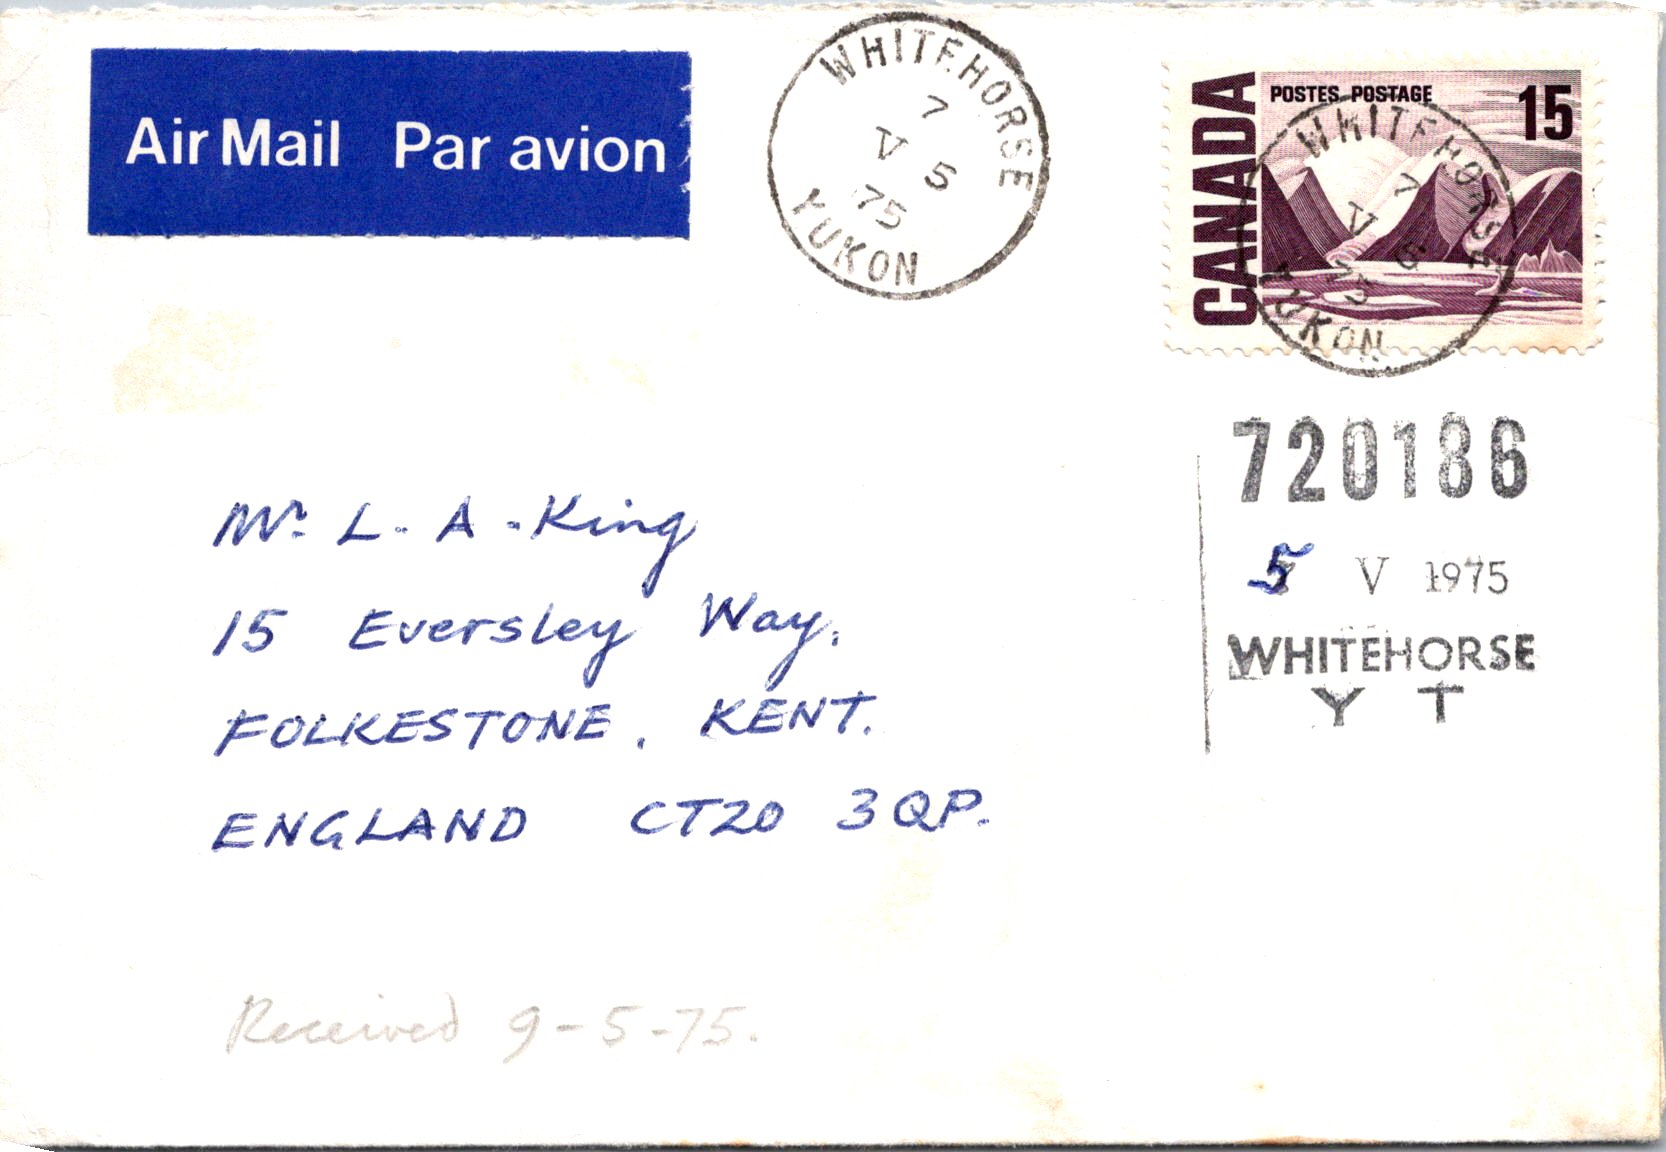 Air Mail Par avion
WHITEHORSE
7
V 5
75
YUKON
CANADA
POSTES POSTAGE 15
WHITEHORSE
7
V 5
75
YUKON
720186
5 V 1975
WHITEHORSE
Y T
Mr. L. A. King
15 Eversley Way,
FOLKESTONE, KENT.
ENGLAND CT20 3QP.
Received 9-5-75.